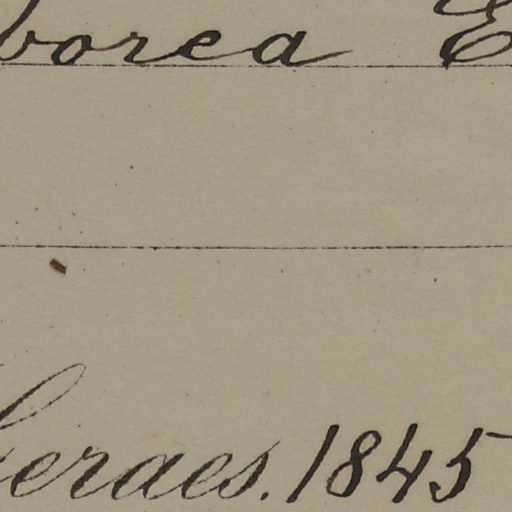 borea E
Geraes. 1845